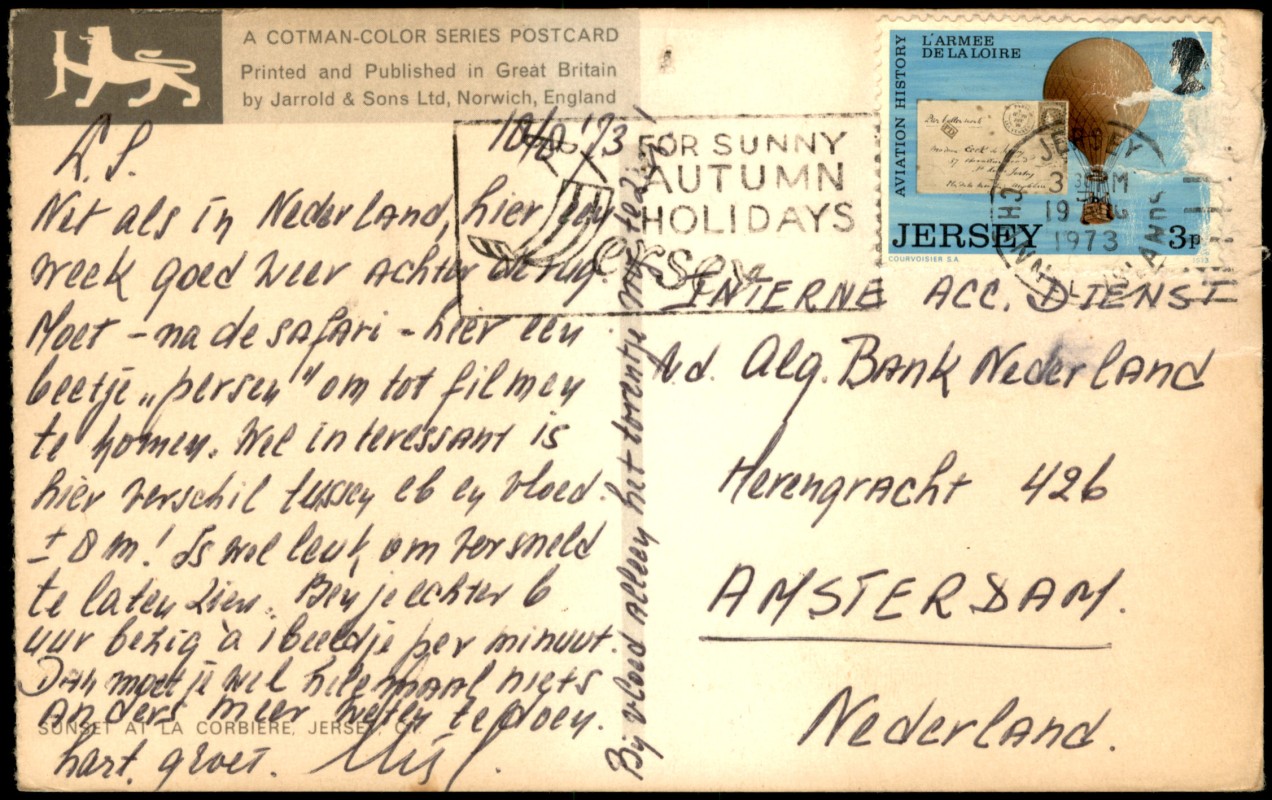 A COTMAN-COLOR SERIES POSTCARD
Printed and Published in Great Britain
by Jarrold & Sons Ltd, Norwich, England
L.S.
Net als in Nederland, hier een
week goed weer achter de rug.
Moet - na de safari - hier een
beetje „persen" om tot filmen
te komen. Wel interessant is
hier verschil tussen eb en vloed.
± 8 m! Is wel leuk om versneld
te laten zien. Ben je echter 6
uur bezig à 1 beeldje per minuut.
Dan moet je wel helemaal niets
anders meer weten te doen.
hart. groet.
SUNSET AT LA CORBIERE, JERSEY, C.I.
Bij vloed alleen het torentje
FOR SUNNY
AUTUMN
HOLIDAYS
Jersey
AVIATION HISTORY
L'ARMEE
DE LA LOIRE
JERSEY
3p
COURVOISIER S.A.
1973
JERSEY
19
1973
CHANNEL
INTERNE ACC. DIENST
v.d. Alg. Bank Nederland
Herengracht 426
AMSTERDAM.
Nederland.